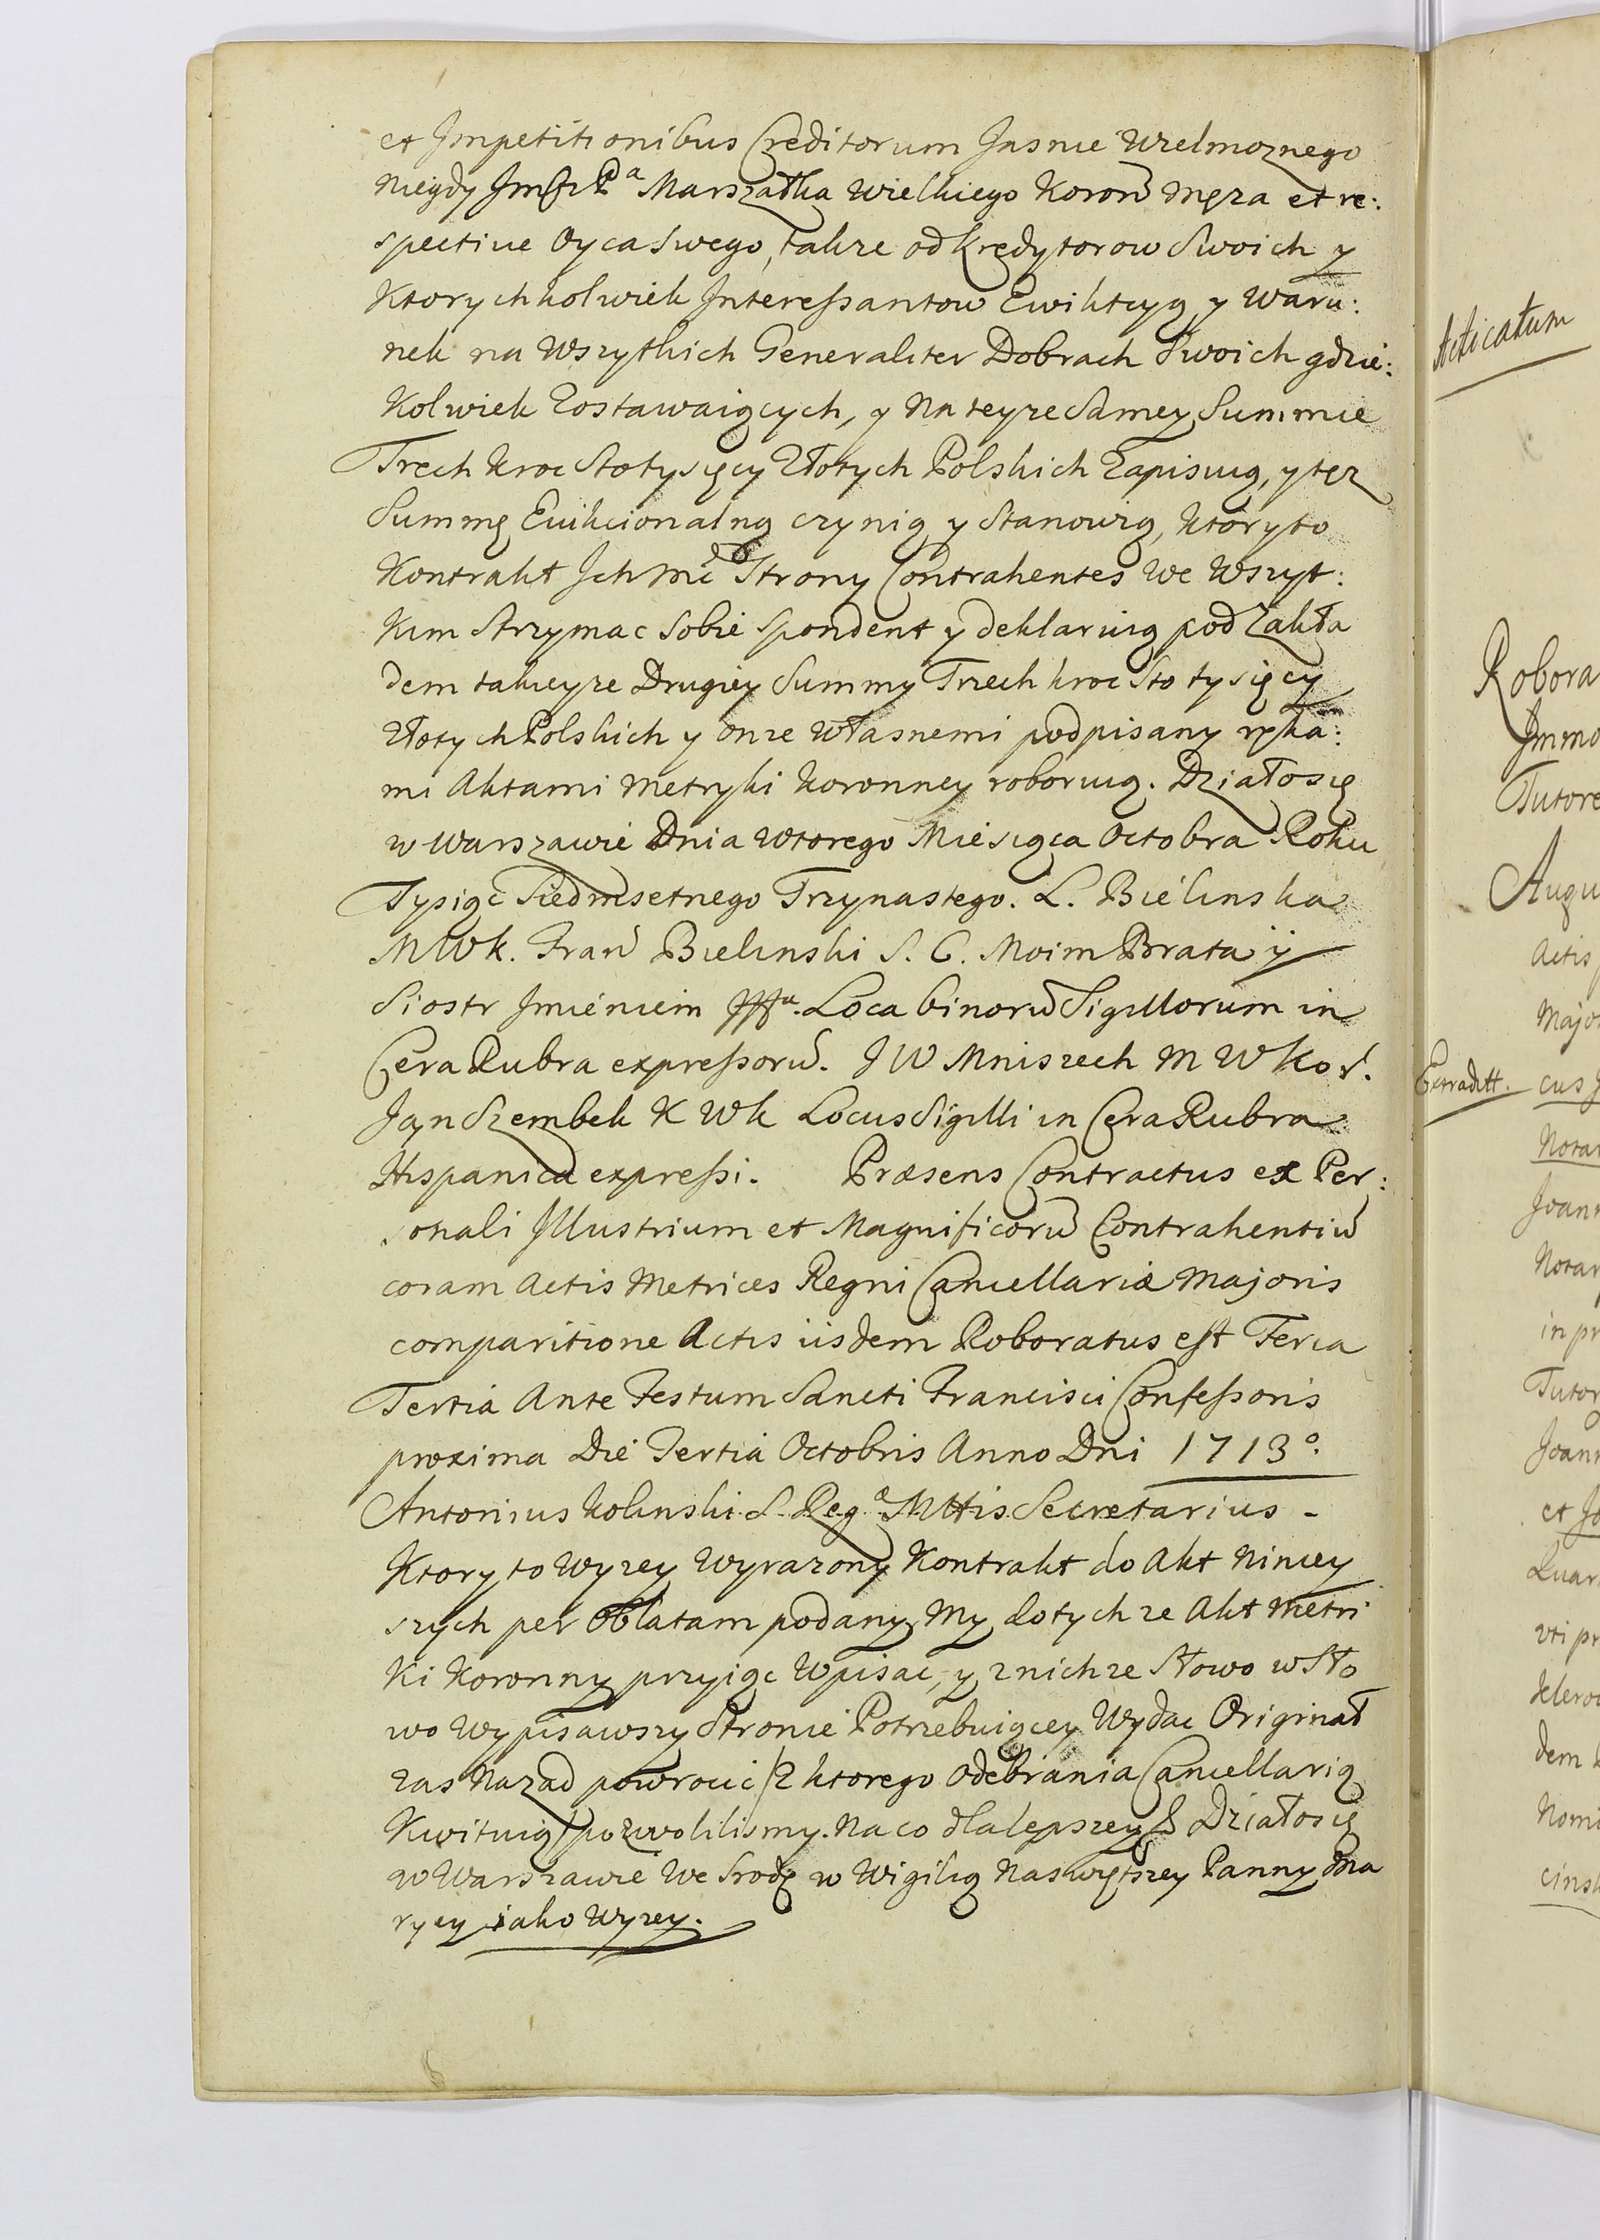 et Impetitionibus Creditorum Jasnie Wielmoznego
niegdy Jmści Pa Marszałka Wielkiego Koron Męza et re:
spective Oyca Swego, takze od Kredytorow Swoich y
Ktorychkolwiek Interessantow Ewiktyą y Waru:
nek na Wszytkich Generaliter Dobrach Swoich gdzie:
Kolwiek Zostawaiących, y na teyze Samey Summie
Trech kroc Stotysięcy Złotych Polskich Zapisuią, y tęz
Summę Ewikcionalną czynią y Stanowią, ktoryto
Kontrakt Ich Mć Strony Contrahentes We Wszyt:
Kim Strzymac Sobie Spondent y deklaruią pod Zakła
dem takieyze Drugiey Summy Trzech kroc Sto tysięcy
Złotych Polskich y onze Własnemi podpisany ręka:
mi Aktami Metryki Koronney roboruią. Działosię
w Warszawie Dnia Wtorego Miesiąca Octobra Roku
Tysiąc Siedmsetnego Trzynastego. L. Bielinska
M W K. Fran Bielinski S. C. Moim Brata y
Siostr Imieniem. Loca binorū Sigillorum in
Cera Rubra expressorū. J W Mniszech M W Kor.
Jan Szembek K W K Locus Sigilli in Cera Rubra
Hispanica expressi. Præsens Contractus ex Per:
sonali Illustrium et Magnificorū Contrahentiū
coram Actis Metrices Regni Cancellariæ Majoris
comparitione Actis iisdem Roboratus est Feria
Tertia Ante Festum Sancti Francisci Confessoris
proxima Die Tertia Octobris Anno Dni 1713o.
Antonius Kolinski. S. Rega Mttis Secretarius -
Ktory to Wyzey Wyrazony Kontrakt do Akt Niniey
szych per Oblatam podany My do tychze Akt Metri
Ki Koronny przyiąc Wpisac, y z nichze Słowo w Sło
wo Wypisawszy Stronie Potrzebuiącey Wydac Originał
zas Nazad powrocic /Z ktorego Odebrania Cancellarią
Kwituią/ pozwolilismy. Na co dla lepszey Działosię
w Warszawie We Srodę w Wigilią Naswiętszey Panny Ma
ryey iako Wyzey.
Acticatum
Robora
Immo
Tutore
Augu
Actis
Majo
Extradtt.
cus
Notar
Joann
Notar
in pr
Tutor
Joann
et Jo
vti pr
dem
Nomi
cinsk